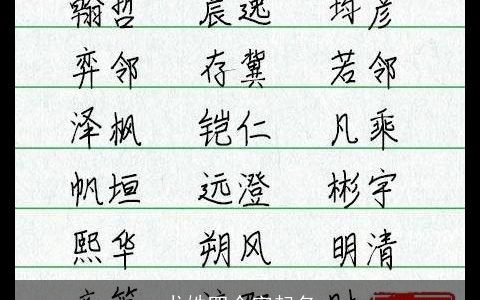 翰哲 辰逸 均彦
弈邻 存冀 若邻
泽枫 铠仁 凡乘
帆垣 远澄 彬宇
熙华 朔风 明清